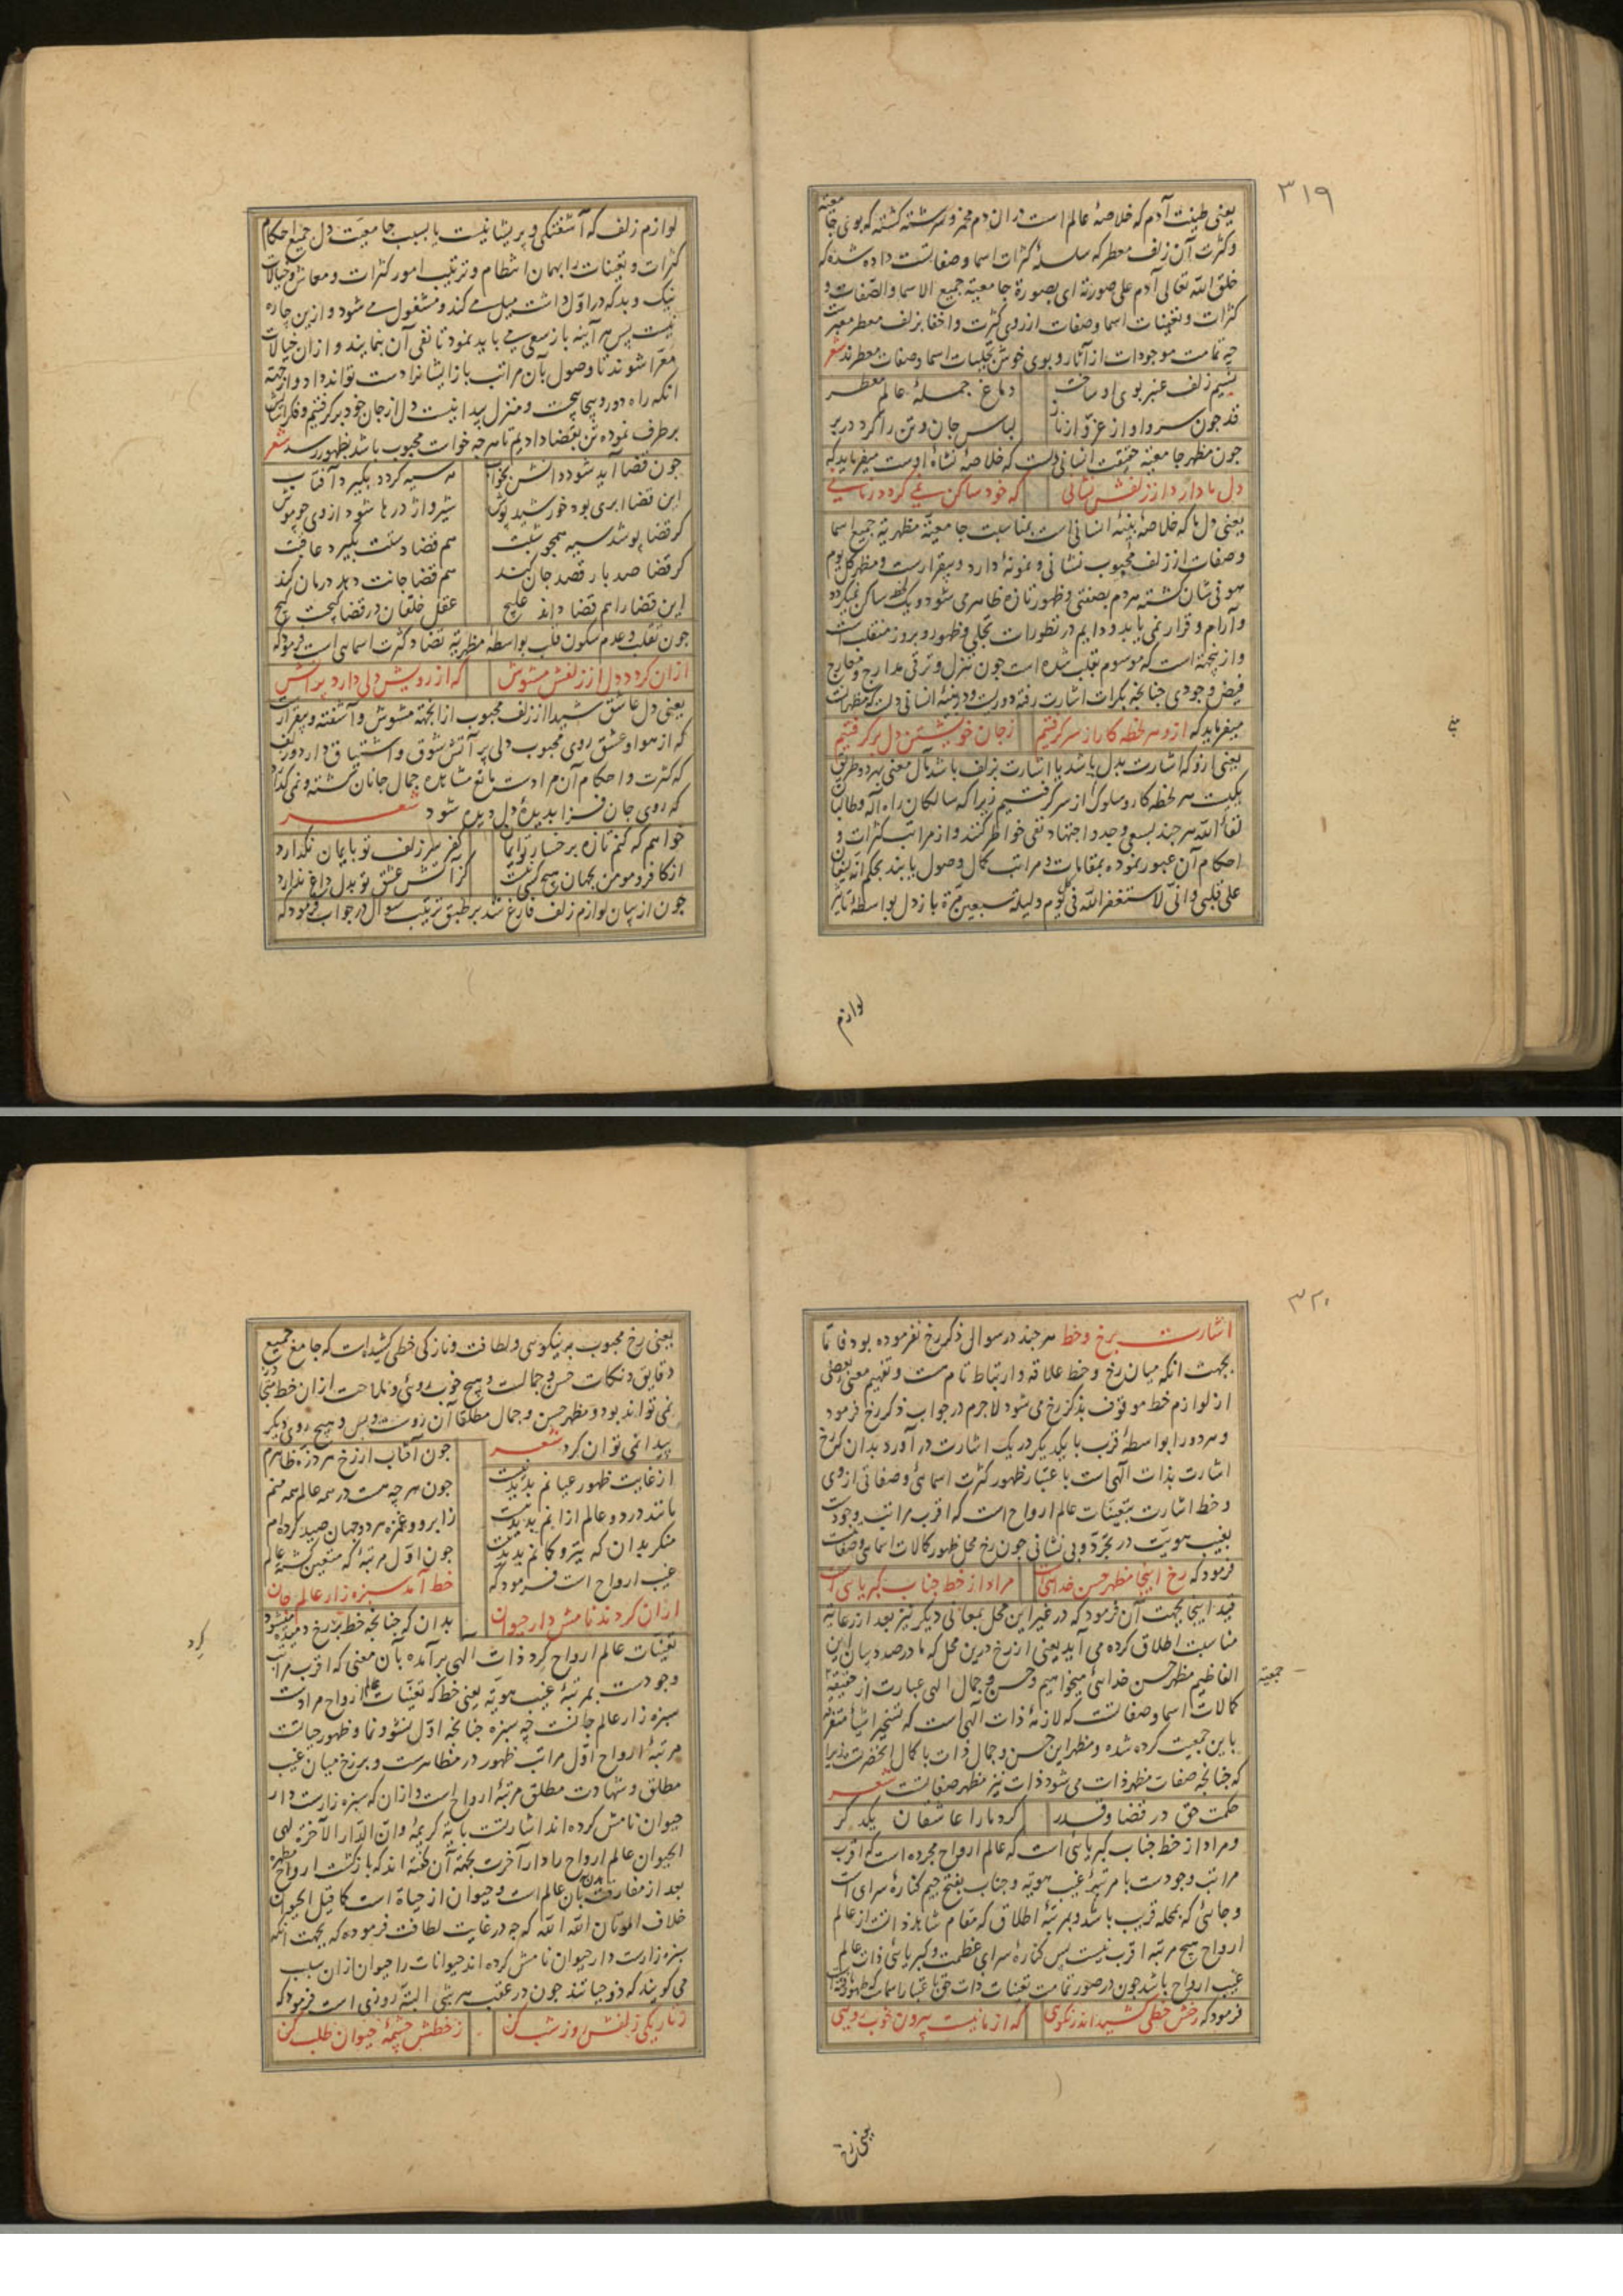 ۳۱۹
یعنی طینت آدم که خلاصهٔ عالم است در ان دم مخمر و سرشته کشته که بوی جامعیة
و کثرت آن زلف معطر که سلسلهٔ کثرات اسما و صفاتست داده شده که
خلق الله تعالی آدم علی صورته ای بصورة جامعیة جمیع الاسما والصفات و
کثرات و تعینات اسما و صفات از روی کثرت و اخفا بزلف معطر معبرست
چه تمامت موجودات از آثار و بوی خوش تجلیات اسما و صفات معطرند شعر
نسیم زلف عنبر بوی او ساخت
دماغ جملهٔ عالم معطر
قد چون سرو او از عزّ و از ناز
لباس جان و تن را کرد در بر
جون مظهر جامعیة حقیقت انسانی دلست که خلاصهٔ نشاهٔ اوست میفرماید که
دل ما دارد از زلفش نشانی
که خود ساکن نمی کردد زمانی
یعنی دل ما که خلاصهٔ بنیهٔ انسانی است بمناسبت جامعیة مظهریة جمیع اسما
و صفات از زلف محبوب نشانی و نمونهٔ دارد و بیقرارست و مظهر کل یوم
هو فی شان کشته هر دم بصفتی و ظهور تازه ظاهر می شود و یک لحظه ساکن نمیکردد
و آرام و قرار نمی یابد و دایم در تطورات تجلی و ظهور و بروز منقلب است
و ازینجهة است که موسوم بقلب شده است جون تنزل و ترقی مدارج و معارج
فیض وجودی جنانچه بکرات اشارت رفته دوریست و در نشهٔ انسانی دلست که مظهر آنست
میفرماید که ازو هر لحظه کار از سر کرفتیم
زجان خویشتن دل بر کرفتیم
یعنی ازو که اشارت بدل باشد یا اشارت بزلف باشد مآل معنی بهر دو طریق
یکیست هر لحظه کار و سلوک از سر کرفتیم زیرا که سالکان راه اله و طالبان
لقاء الله هر جند بسعی و جد و اجتهاد نفی خواطر کنند و از مراتب کثرات و
احکام آن عبور نموده بمقامات و مراتب کمال وصول یابند بحکم انه لیغان
علی قلبی وانی لاستغفر الله فی کل یوم ولیلة سبعین مرّة باز دل بواسطهٔ تاثیر
لوازم
لوازم زلف که آشفتکی و پریشانیست یا بسبب جامعیت دل جمیع احکام
کثرات و تعینات را بهمان انتظام و ترتیب امور کثرات و معاش و خیالات
نیک و بد که در اوّل داشت میل می کند و مشغول می شود و ازین چاره
نیست پس هر آینه باز سعی می باید نمود تا نفی آن نمایند و از ان خیالات
معرّا شوند تا وصول بآن مراتب باز ایشانرا دست تواند داد و از جهة
انکه راه دور و پیچاپیچست و منزل پیدا نیست دل از جان خود بر کرفتیم و فکر ایشان
بر طرف نموده تن بقضا دادیم تا هر چه خواست محبوب باشد بظهور رسد شعر
جون قضا آید شود دانش بخواب
مه سیه کردد بکیرد آفتاب
این قضا ابری بود خورشید پوش
شیر و اژدرها شود از وی چو موش
کر قضا پوشد سیه همچو شبت
هم قضا دستت بکیرد عاقبت
کر قضا صد بار قصد جان کند
هم قضا جانت دهد درمان کند
این قضا را هم قضا داند علاج
عقل خلقان در قضا کیجست کیج
جون تقلب و عدم سکون قلب بواسطهٔ مظهریة تضاد کثرت اسمایی است فرمود که
ازان کردد دل از زلفش مشوش
که از رویش دلی دارد پر آتش
یعنی دل عاشق شیدا از زلف محبوب از انجهة مشوش و آشفته و بیقرارست
که از هوا و عشق روی محبوب دلی پر آتش شوق و اشتیاق دارد و زلف
که کثرت و احکام آن مرادست مانع مشاهده جمال جانان کشته و نمی کذارد
که روی جان فزا بدیدهٔ دل دیده شود شعر
خواهم که کنم تازه بر خسار تو ایمان
کفر سر زلف تو بایمان نکذارد
از کافر و مومن بجهان هیچ کسی نیست
کز آتش عشق تو بدل داغ ندارد
جون از بیان لوازم زلف فارغ شد بر طبق ترتیب سوال در جواب فرمود که
۳۲۰
اشارت برخ و خط هر چند در سوالی ذکر رخ نفرموده بود فاما
بجهت انکه میان رخ و خط علاقه و ارتباط تام هست و تفهیم معنی بعضی
از لوازم خط موقوف بذکر رخ می شود لاجرم در جواب ذکر رخ فرمود
و هر دو را بواسطهٔ قرب با یکدیکر در یک اشارت در آورد بدان که رخ
اشارت بذات آلهی است باعتبار ظهور کثرت اسمائی و صفاتی از وی
و خط اشارت بتعینات عالم ارواح است که اقرب مراتب وجودست
بغیب هویت در تجرّد و بی نشانی جون رخ محل ظهور کمالات اسمائی و صفاتیست
فرمود که رخ اینجا مظهر حسن خدایی است
مراد از خط جناب کبریایی است
قید اینجا بجهت آن فرمود که در غیر این محل بمعانی دیکر نیز بعد از رعایة
مناسبت اطلاق کرده می آید یعنی از رخ درین محل که ما در صدد بیان این
الفاظیم مظهر حسن خدائی میخواهیم و حسن و جمال الهی عبارت از جمعیة
کمالات اسما و صفاتست که لازمهٔ ذات آلهی است
باین جمعیت کرده شده و مظهر این حسن و جمال ذات با کمال انحضرتست زیرا
که جنانچه صفات مظهر ذات می شود ذات نیز مظهر صفاتست شعر
حکمت حق در قضا و قدر
کرد ما را عاشقان یکدکر
و مراد از خط جناب کبریائی است که عالم ارواح مجرده است که اقرب
مراتب وجودست با مرتبهٔ غیب هویة و جناب بفتح جیم کنارهٔ سرای است
و جائی که بمحله قریب باشد و بمرتبهٔ اطلاق که مقام شاهد ذاتست از عالم
ارواح هیچ مرتبه اقرب نیست پس کنارهٔ سرای عظمت و کبریائی ذات عالم
غیب ارواح باشد جون در صور تمامت تعینات ذات حق باعتبار اسماست که ظهور یافته
فرمود که رخش خطی کشید اندر نکویی
که از ما نیست بیرون خوب رویی
جمعیة
یعنی رخ
یعنی رخ محبوب بر نیکویی و لطافت و نازکی خطی کشیده است که جامع جمیع
دقایق و نکات حسن و جمالست و هیچ خوب روئی و ملاحت از ان خط
نمی تواند بود و مظهر حسن و جمال مطلقا آن رویست و بس و هیچ روی دیکر
پیدا نمی توان کرد شعر
جون آفتاب از رخ هر ذرّه ظاهرم
از غایت ظهور عیانم بدید نیست
جون هر چه هست در همه عالم همه منم
مانند در دو عالم از انم بدید نیست
زابرو و غمزه هر دو جهان صید کرده ام
منکر بدان که تیر و کمانم بدید نیست
جون اوّل مرتبهٔ که متعین کشته عالم
غیب ارواح است فرمود که
خط آمد سبزه زار عالم جان
ازان کردند نامش دار حیوان
بدان که جنانچه خط بر رخ دمیده میشود
تعینات عالم ارواح کرد ذات الهی بر آمده بآن معنی که اقرب مراتب
وجودست بمرتبهٔ غیب هویة یعنی خط که تعینات عالم ارواح مرادست
سبزه زار عالم جانست چه سبزه جنانچه اوّل نشو و نما و ظهور حیاتست
مرتبهٔ ارواح اوّل مراتب ظهور در مظاهرست و برزخ میان غیب
مطلق و شهادت مطلق مرتبهٔ ارواح است و ازان که سبزه زارست دار
حیوان نامش کرده اند اشارتست بآیة کریمهٔ وان الدار الآخرة لهی
الحیوان عالم ارواح را دار آخرت بجهة آن کفته اند که بازکشت ارواح مطهره
بعد از مفارقت بدن بآن عالم است و حیوان از حیاة است کما قیل الحیوان
خلاف الموتان الله الله که چه در غایت لطافت فرموده که بجهت انکه
سبزه زارست دار حیوان نامش کرده اند حیوانات را حیوان ازان سبب
می کویند که ذو حیاتند جون در عقب هر شبی البته روزی است فرمود که
زتاریکی زلفش روز شب کن
زخطش چشمهٔ حیوان طلب کن
کرد